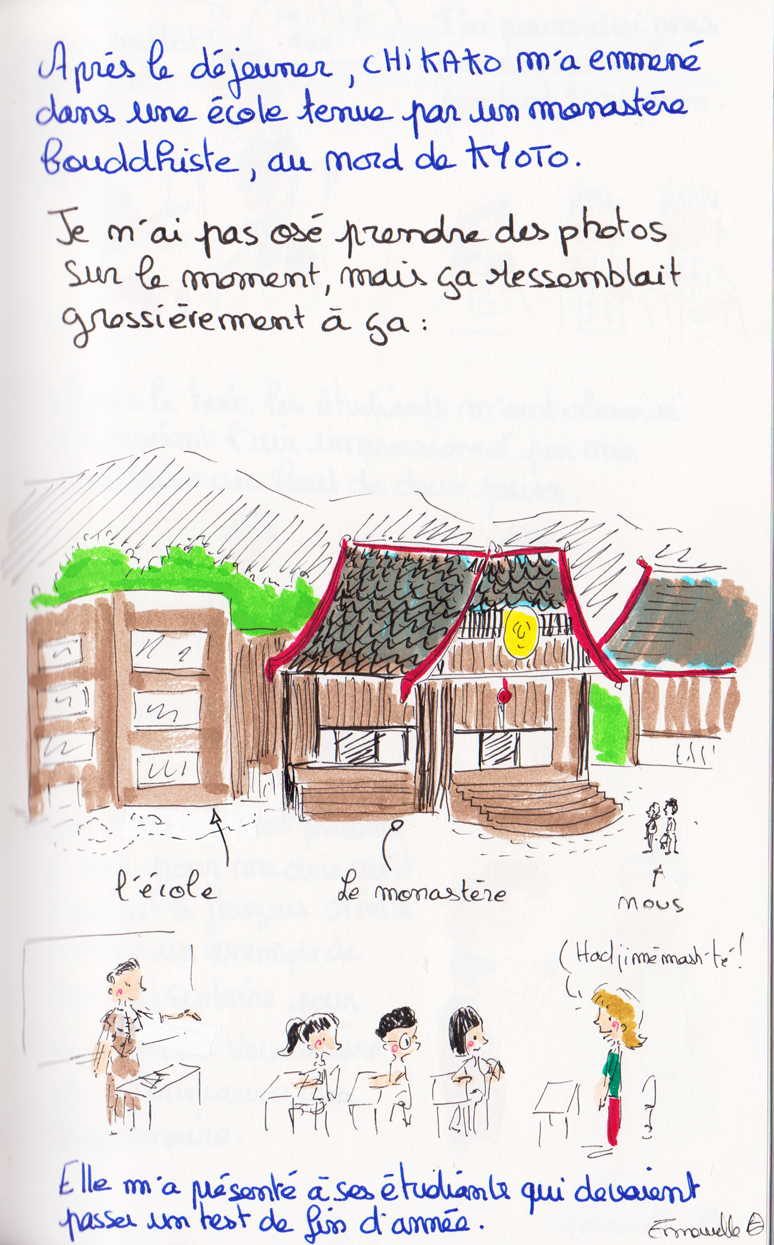 Après le déjeuner, CHIKAKO m'a emmené
dans une école tenue par un monastère
bouddhiste, au nord de KYOTO.
Je n'ai pas osé prendre des photos
sur le moment, mais ça ressemblait
grossièrement à ça :
l'école
Le monastère
nous
Hadjimémash-té !
Elle m'a présenté à ses étudiants qui devaient
passer un test de fin d'année.
Emmanuelle